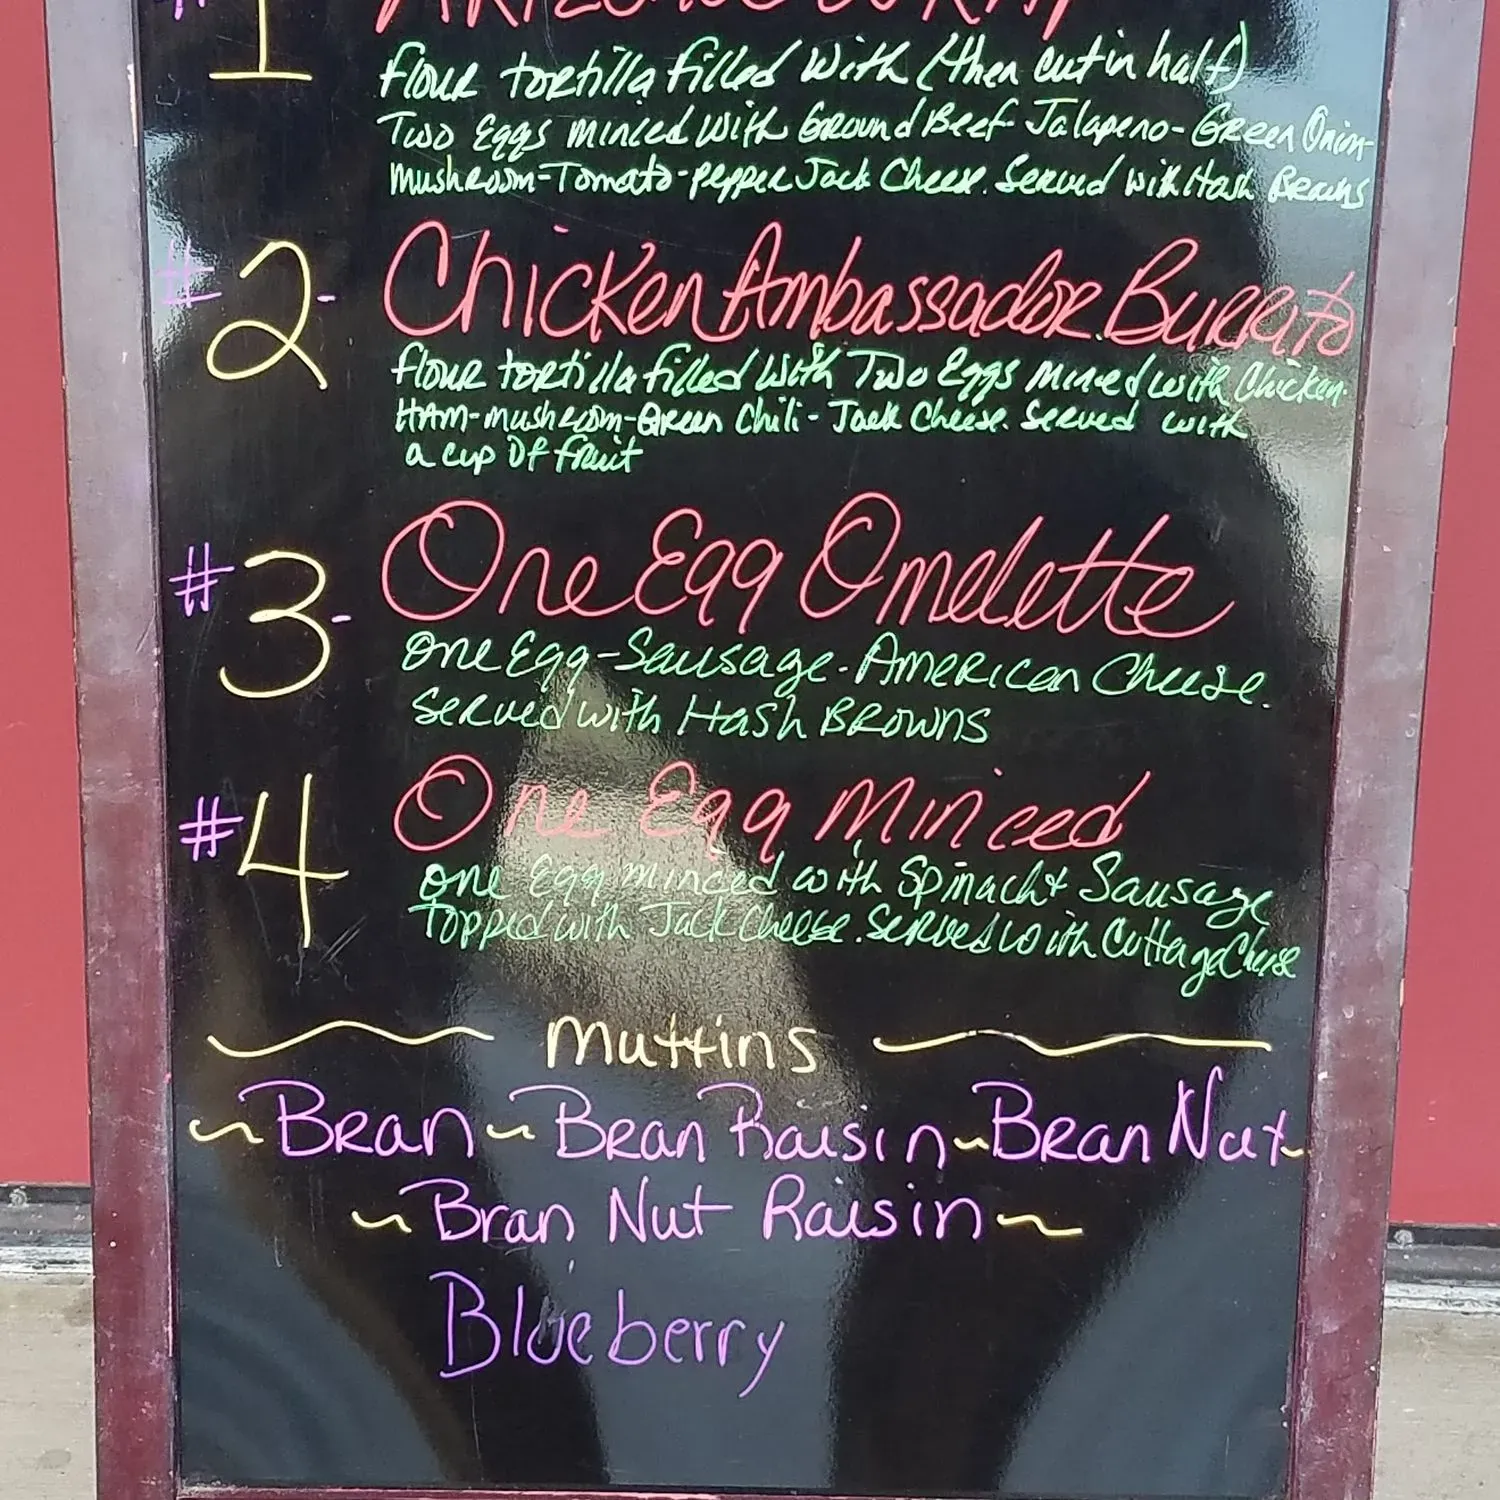 #1
flour tortilla filled with (then cut in half)
Two Eggs minced with Ground Beef Jalapeno - Green Onion -
mushroom - Tomato - pepper Jack Cheese. Served with Hash Browns
#2 - Chicken Ambassador Burrito
flour tortilla filled with Two Eggs minced with Chicken -
HAM - mushroom - Green Chili - Jack Cheese. Served with
a cup of fruit
#3 - One Egg Omelette
one Egg - Sausage - American Cheese.
Served with Hash Browns
#4 One Egg Minced
one Egg minced with Spinach & Sausage
Topped with Jack Cheese. Served with Cottage Cheese
Muffins
~ Bran ~ Bran Raisin ~ Bran Nut ~
~ Bran Nut Raisin ~
Blueberry